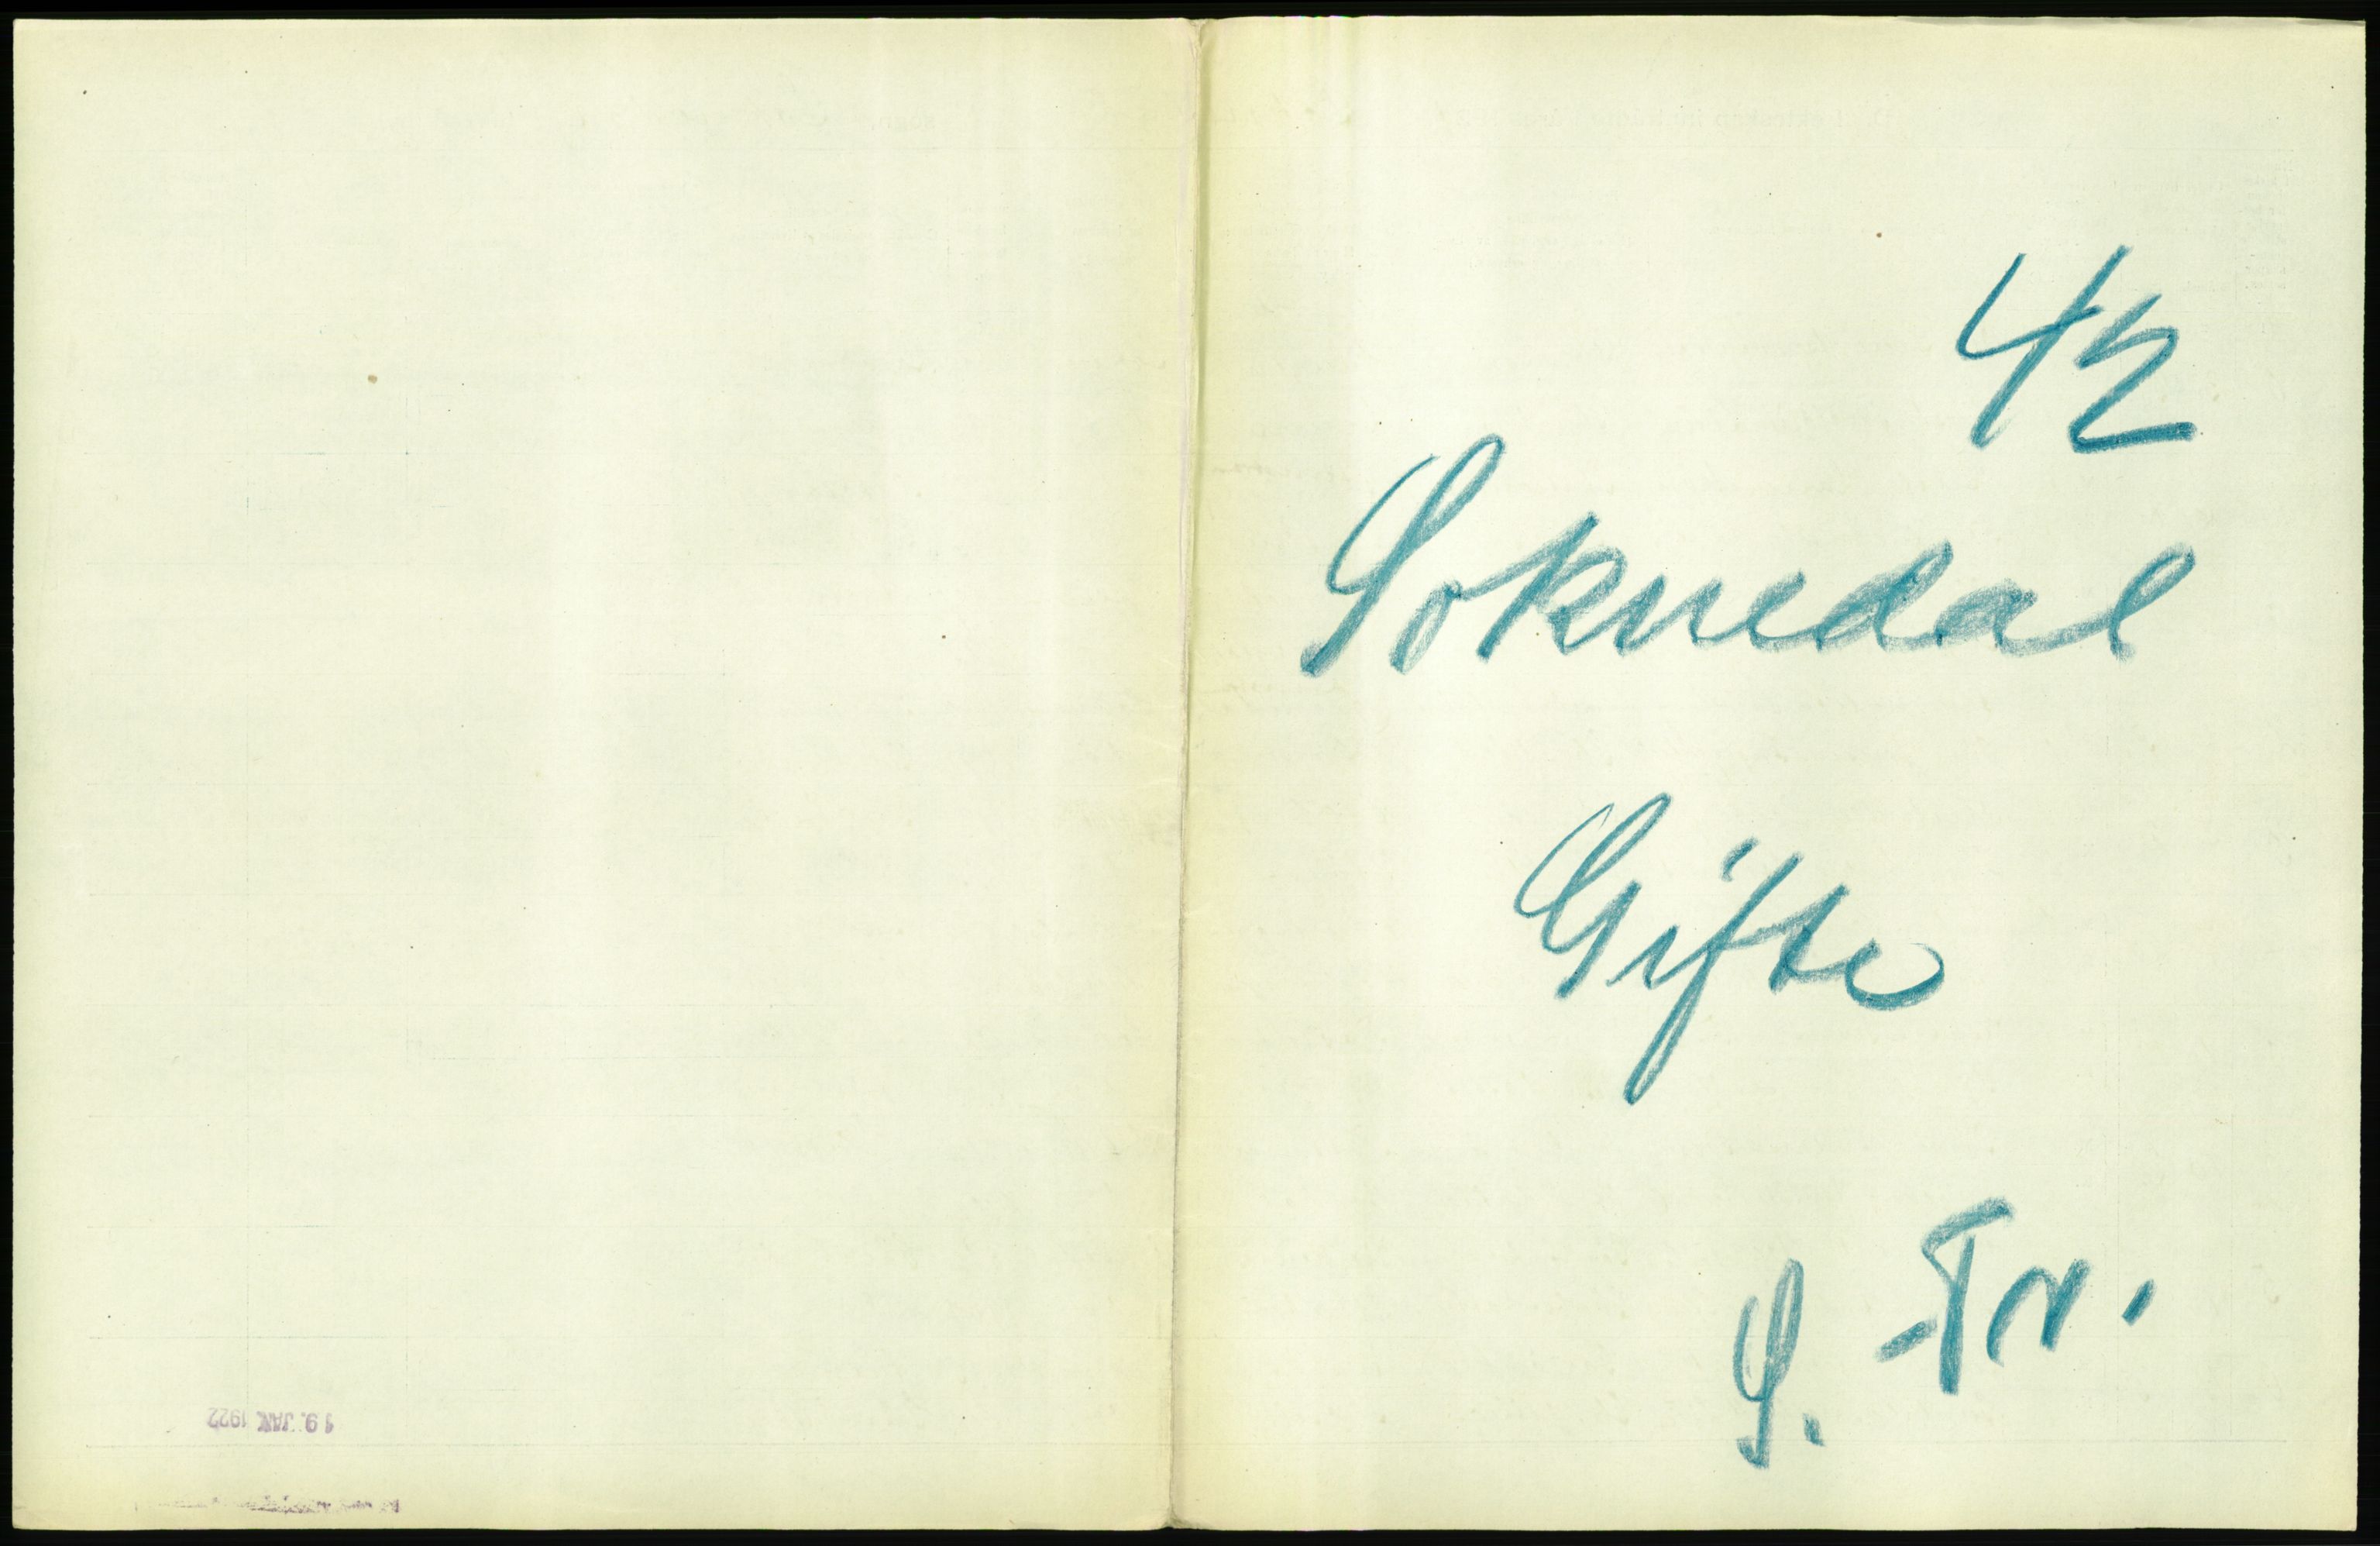 42
Soknedal
Gifte
S. Tr.
19. JAN 1922